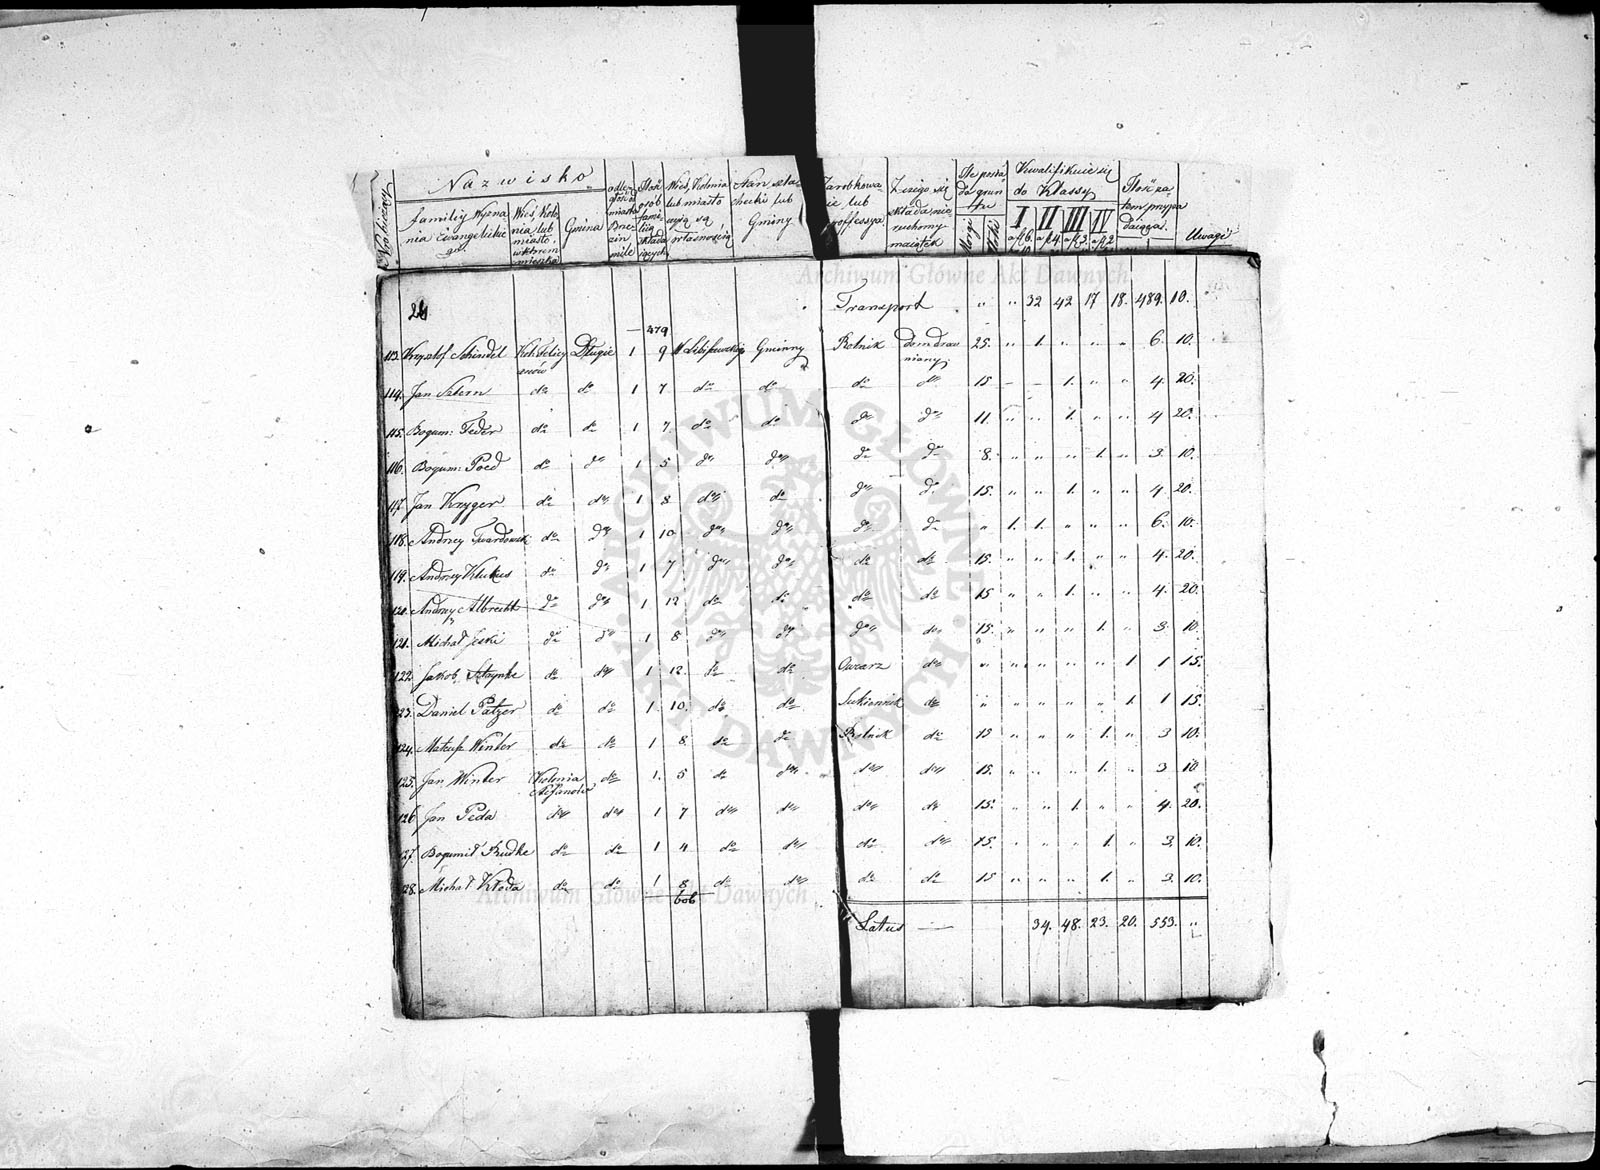 Nazwisko
familiy Wyzna
nia Ewangelickie
go
Wieś, Kolo
nia lub
miasto,
w którem
mieszka
Gmina
odle
głość od
miasta
Brze
zin
mile
Ilość
osób
fami
lią
składa
iących
Wieś, Kolonia
lub miasto
czyią są
własnością
Stan szla
checki lub
Gminny
Zarobkowa
nie lub
proffessya
Z czego się
składa nie
ruchomy
maiątek
Ile posia
da grun
tu
Morgi
Kwalifikuie się
do Klassy
I II III IV
a fl 6. a fl 4. a fl 3. a fl 2
Ilość za
tem przypa
daiąca
Uwagi
Archiwum Główne Akt Dawnych
Transport " " 32 42 17 18. 489. 10.
479
113. Krysztof Schindel Kol: Felicy Długie 1 9 Gminny Rolnik dom drew 25. " 1. " " " 6. 10.
znów niany
114. Jan Sztern do do 1 7 do do do do 15 – – 1. " " 4. 20.
115. Bogum: Feder do do 1 7 do do do do 11. " " 1. " " 4 20.
116. Bogum: Poed do do 1 5 do do do do 8. " " " 1. " 3. 10.
117. Jan Kryger do do 1 8 do do do do 15. " " 1. " " 4 20.
118. Andrzey Twardowski do do 1 10 do do do do " 1. 1. " " " 6. 10.
119. Andrzey Klukus do do 1 7 do do do do 15. " " 1. " " 4. 20.
120. Andrzey Albrecht do do 1 12 do do do do 15 " " 1. " " 4. 20.
121. Michał Jeske do do 1 8 do do do do 15. " " " 1. " 3. 10.
122. Jakob Sztynke do do 1 12. do do Owczarz do " " " " " 1 1 15.
123. Daniel Patzer do do 1 10. do do Sukiennik do " " " " " 1. 1 15.
124. Mateusz Winter do do 1 8. do do Rolnik do 15 " " " 1. " 3 10.
125. Jan Winter Kolonia do 1. 5 do do do do 15. " " " 1. " 3 10
Stefanów
126 Jan Peda do do 1 7 do do do do 15. " " 1. " " 4. 20.
127. Bogumił Rudke do do 1 4 do do do do 15. " " " 1. " 3. 10.
128. Michał Kłoda do do 1 8 do do do do 15 " " " 1. " 3. 10.
606
Latus — 34. 48. 23. 20. 553. "
Archiwum Główne Akt Dawnych
ARCHIWUM GŁÓWNE AKT DAWNYCH